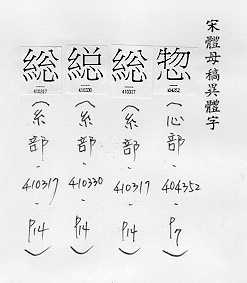 宋體母稿異體字
惣
404352
（心部-404352-P7）
総
410317
（糸部-410317-P14）
410330
（糸部-410330-P14）
総
410317
（糸部-410317-P14）